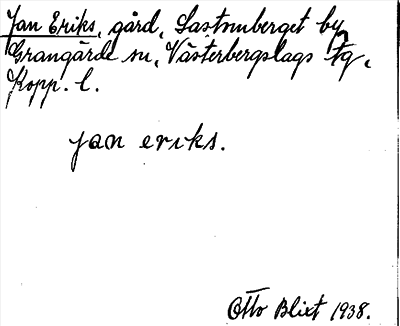 Jan Eriks, gård, Sastnuberget by
Grangärde sn, Västerbergslags tg,
Kopp. l.
jan eriks.
Otto Blixt 1938.